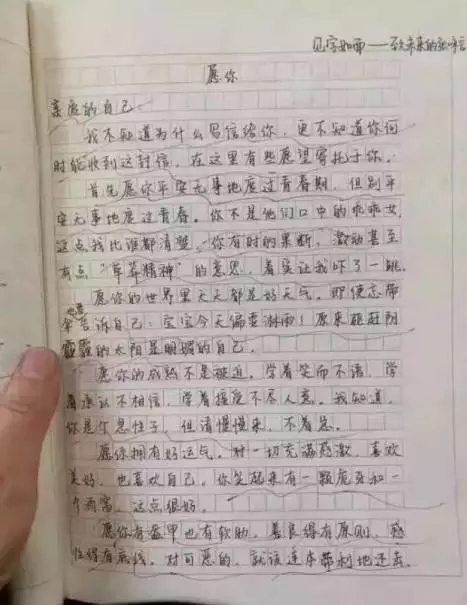 见字如面——致未来的
愿你
亲爱的自己
我不知道为什么写信给你,更不知道你何
时能收到这封信,在这里有些愿望寄托于你。
首先愿你平安无事地度过青春期,但别平
安无事地度过青春。你不是他们口中的乖乖女,
这点我比谁都清楚,你有时的果断,激动甚至
有点“草莽精神”的意思,着实让我吓了一跳。
愿你的世界里天天都是好天气。即便忘带
伞告诉自己:宝宝今天偏要淋雨!原来驱赶阴
霾的太阳是明媚的自己。
愿你的成熟不是被迫,学着笑而不语,学
着承认不相信,学着接受不尽人意。我知道,
你是个急性子,但请慢慢来,不着急。
愿你拥有好运气。对一切充满感激,喜欢
美好,也喜欢自己,你笑起来有一颗虎牙和一
个酒窝,这点很好。
愿你有盔甲也有软肋,善良得有原则,感
性得有底线。对可恶的,就该连本带利地还击。